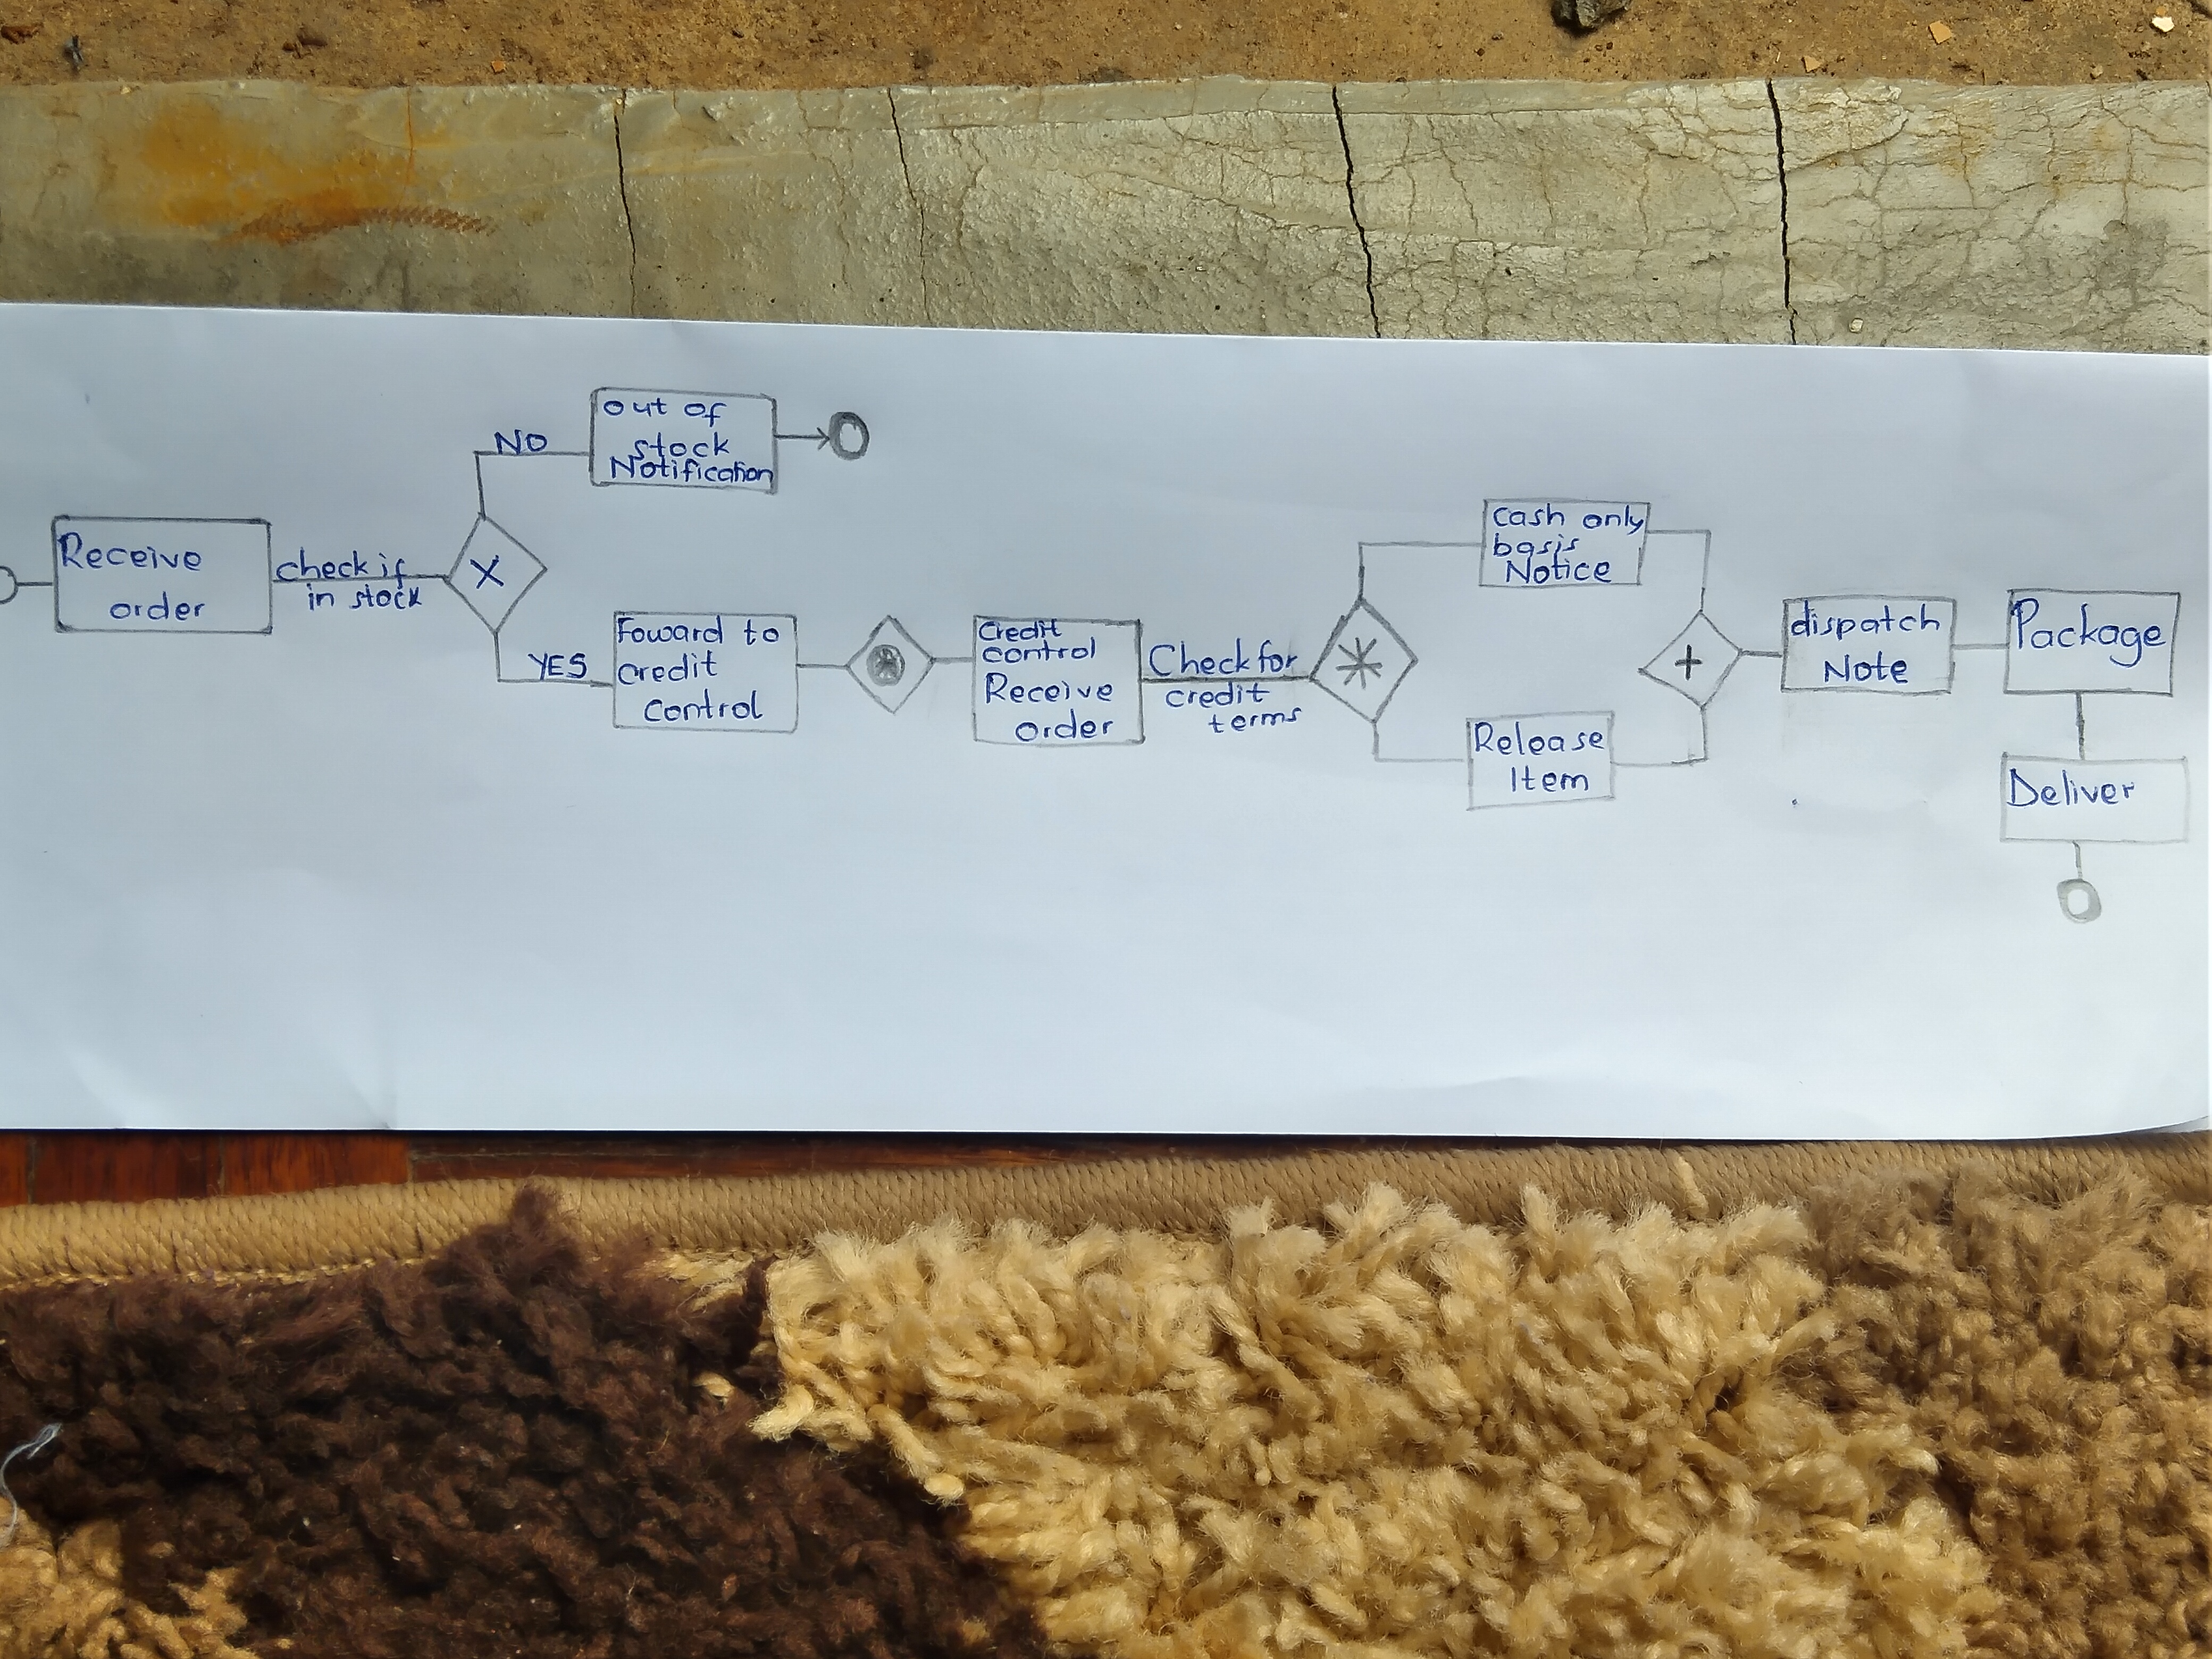 Receive
order
check if
in stock
X
NO
out of
stock
Notification
YES
Foward to
credit
control
Credit
control
Receive
order
Check for
credit
terms
cash only
basis
Notice
Release
Item
+
dispatch
Note
Package
Deliver